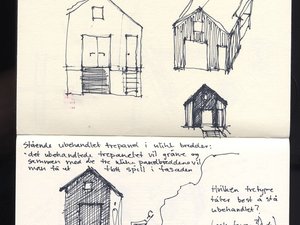 Stående ubehandlet trepanel i ulike bredder:
· det ubehandlede trepanelet vil gråne og
sammen med de tre ulike panelbreddene vil
man få et flott spill i fasaden
Hvilken tretype
tåler best å stå
ubehandlet?